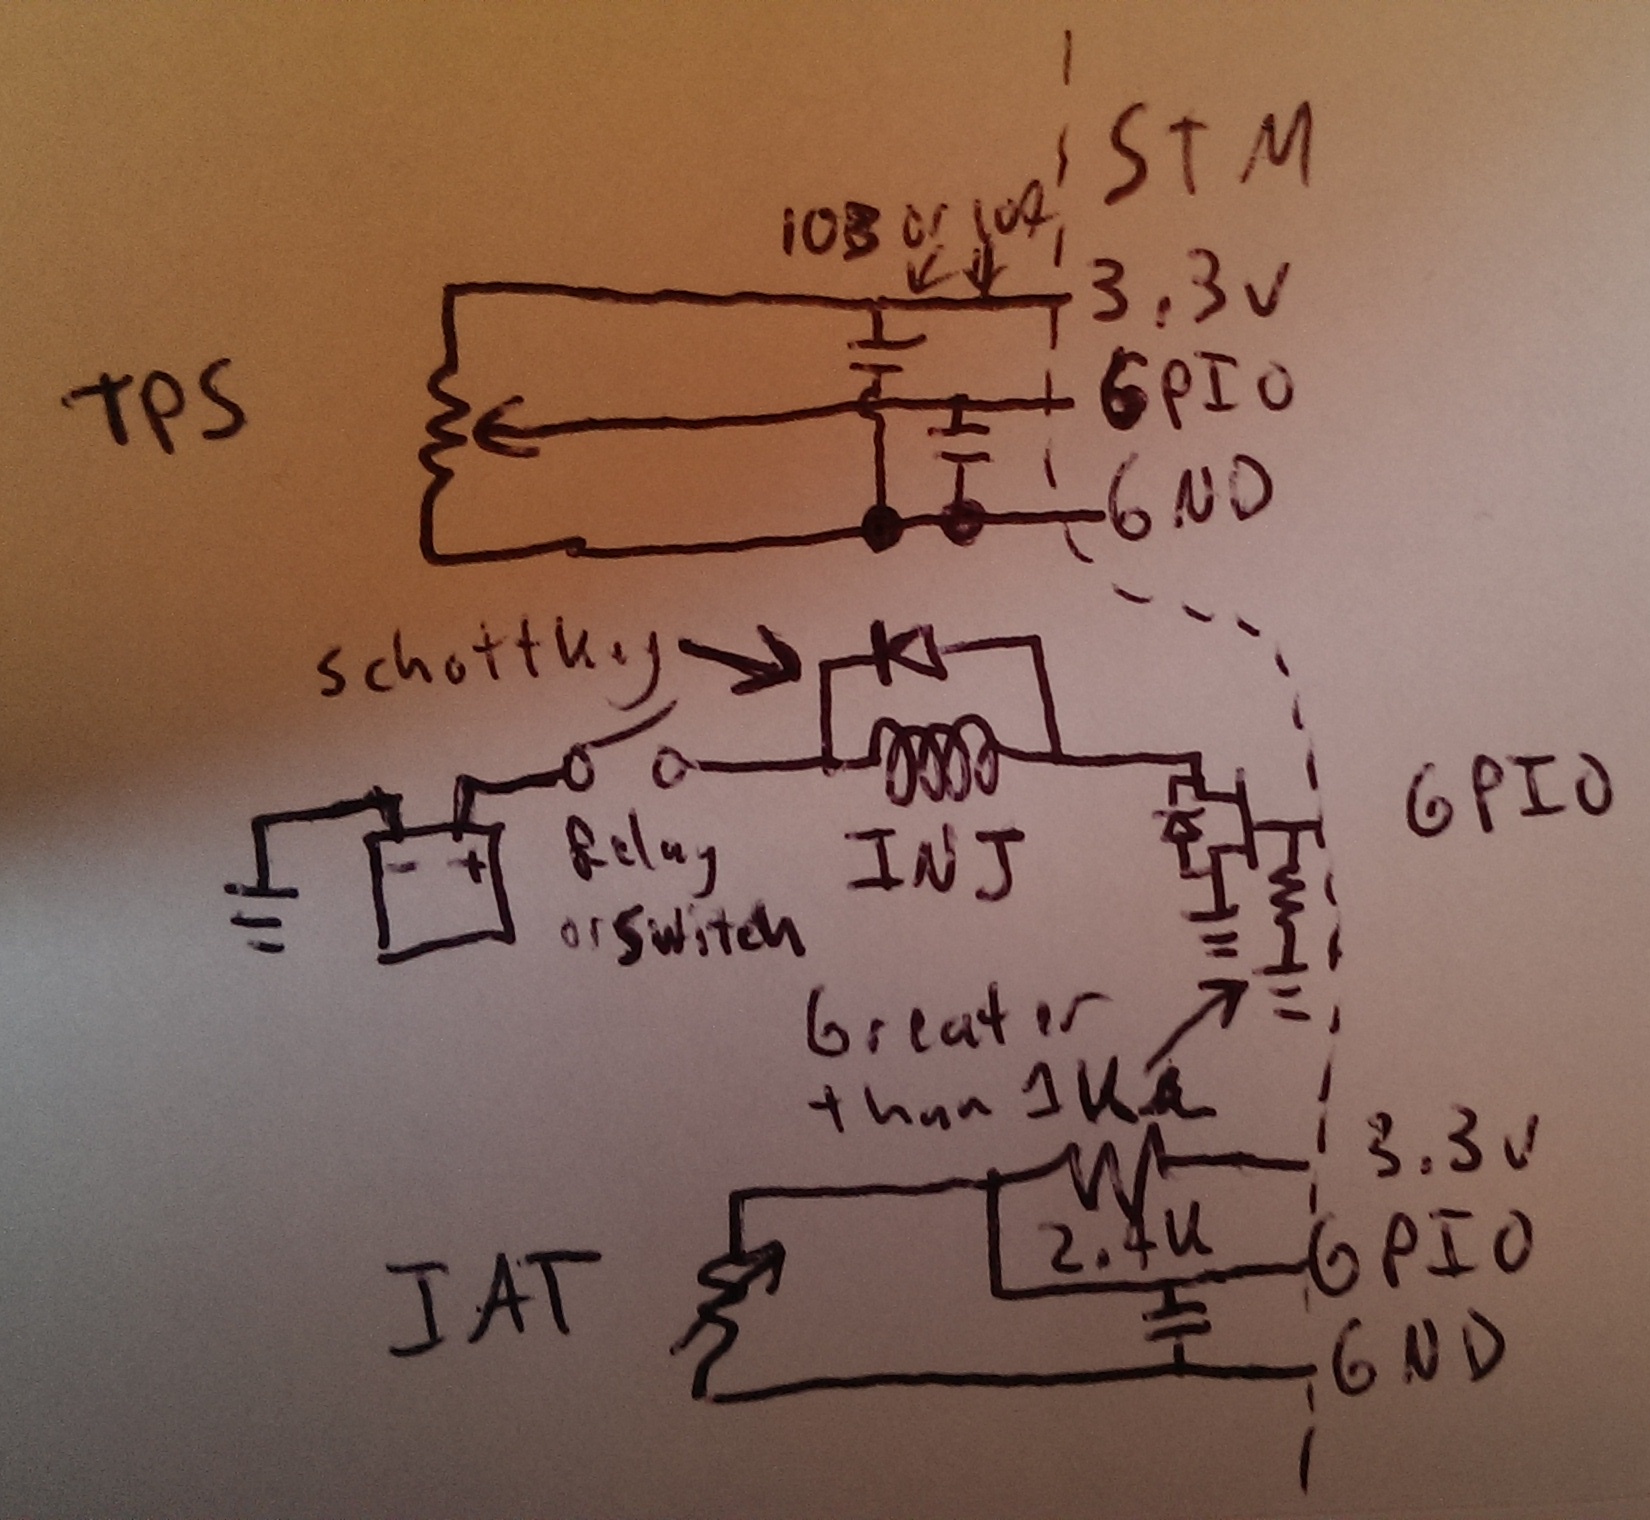 STM
103 or 104
3.3V
TPS
GPIO
GND
schottkey
GPIO
- +
Relay
or switch
INJ
Greater
than 1KΩ
3.3V
2.4K
GPIO
IAT
GND